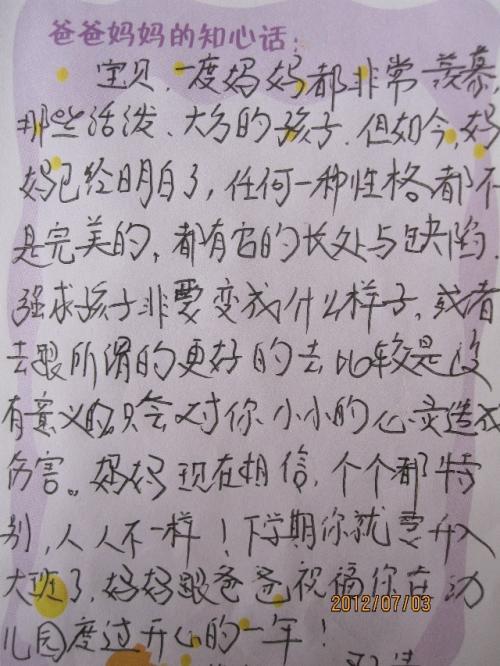 爸爸妈妈的知心话:
宝贝,一度妈妈都非常羡慕
那些活泼、大方的孩子.但如今,妈
妈已经明白了,任何一种性格都不
是完美的,都有它的长处与缺陷.
强求孩子非要变成什么样子,或者
去跟所谓的更好的去比较是没
有意义的,只会对你小小的心灵造成
伤害。妈妈现在相信,个个都特
别,人人不一样!下学期你就要升入
大班了,妈妈跟爸爸祝福你在幼
儿园度过开心的一年!
2012/07/03